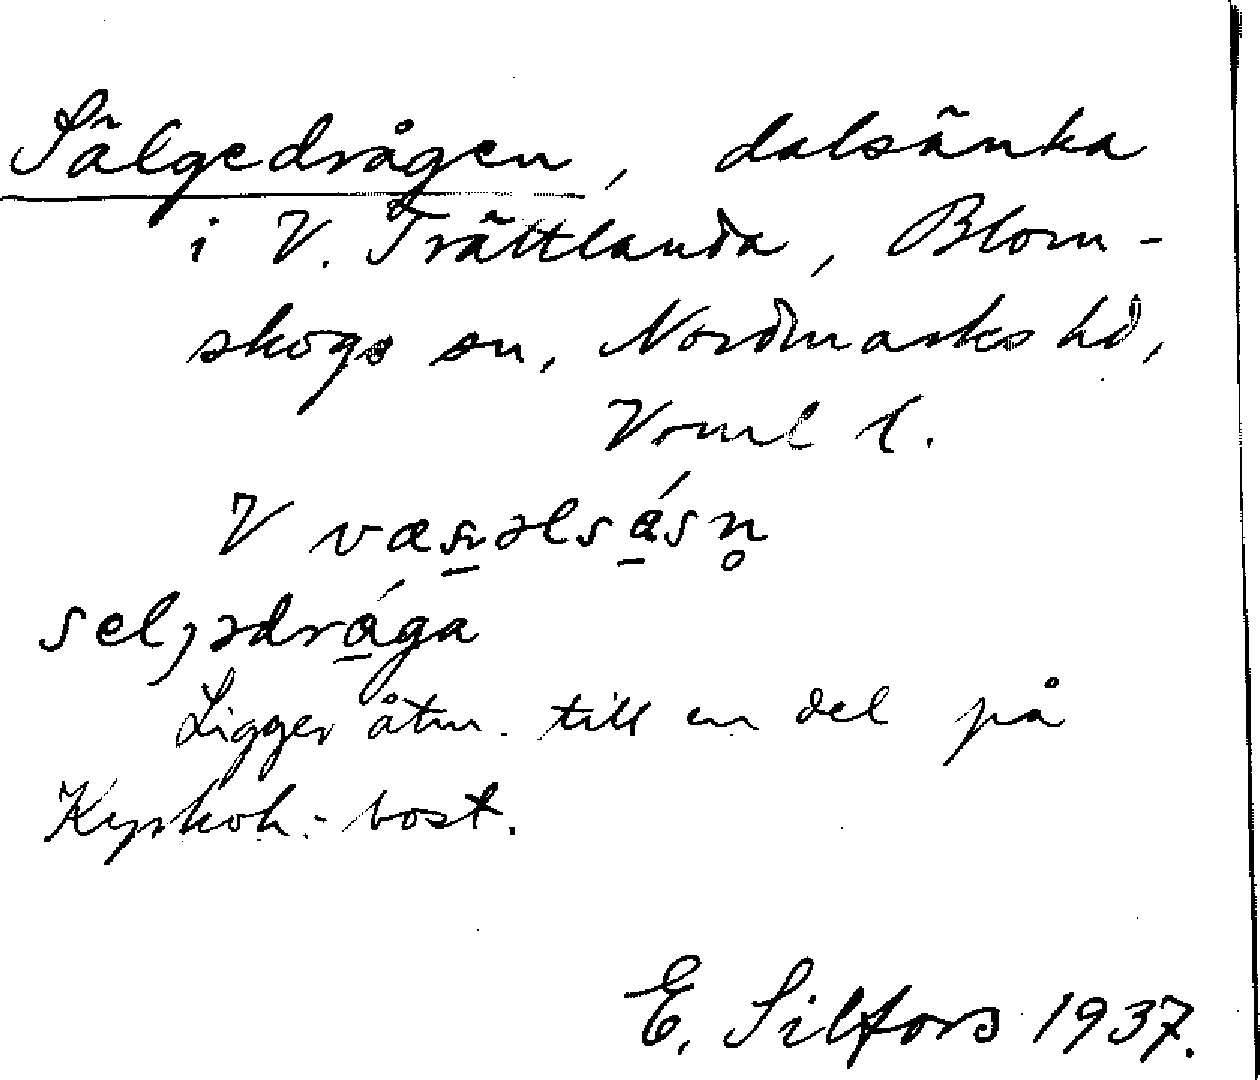 Sälgedrågen, dalsänka
i V. Trättlanda, Blom-
skogs sn, Nordmarks hd,
Vrml l.
V
seljədråga
Ligger åtm. till en del på
Kyrkoh.-bost.
E. Silfors 1937.